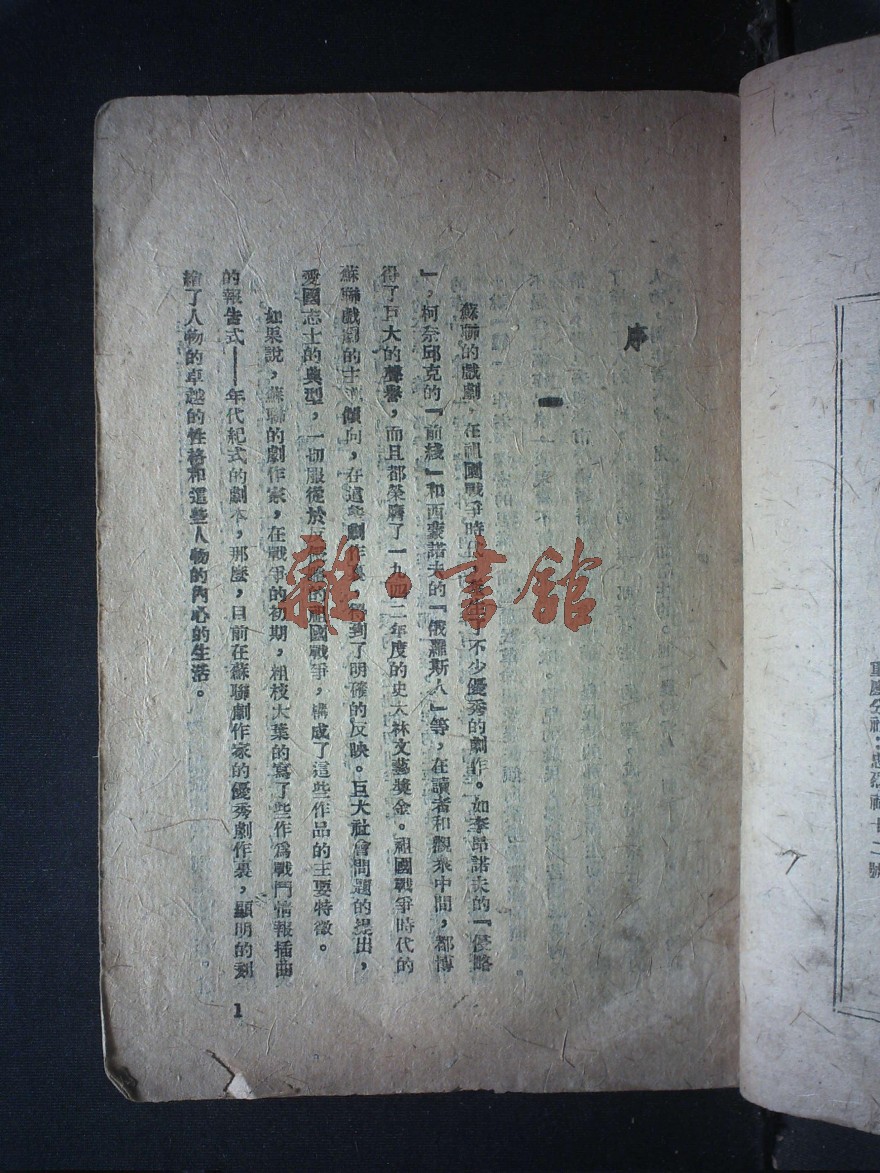 序
一
蘇聯的戲劇,在祖國戰爭時代,產生了不少優秀的劇作。如李昂諾夫的『侵略
』,柯奈邱克的『前綫』和西蒙諾夫的『俄羅斯人』等,在讀者和觀衆中間,都博
得了巨大的聲譽,而且都榮膺了一九四二年度的史大林文藝獎金。祖國戰爭時代的
蘇聯戲劇的主要傾向,在這些劇作裏,得到了明確的反映。巨大社會問題的提出,
愛國志士的典型,一切服從於反侵略的祖國戰爭,構成了這些作品的主要特徵。
如果說,蘇聯的劇作家,在戰爭的初期,粗枝大葉的寫了些作爲戰鬥情報插曲
的報告式——年代紀式的劇本,那麼,目前在蘇聯劇作家的優秀劇作裏,顯明的刻
繪了人物的卓越的性格和這些人物的內心的生活。
1
重慶分社:忠烈祠十二號
雜·書館